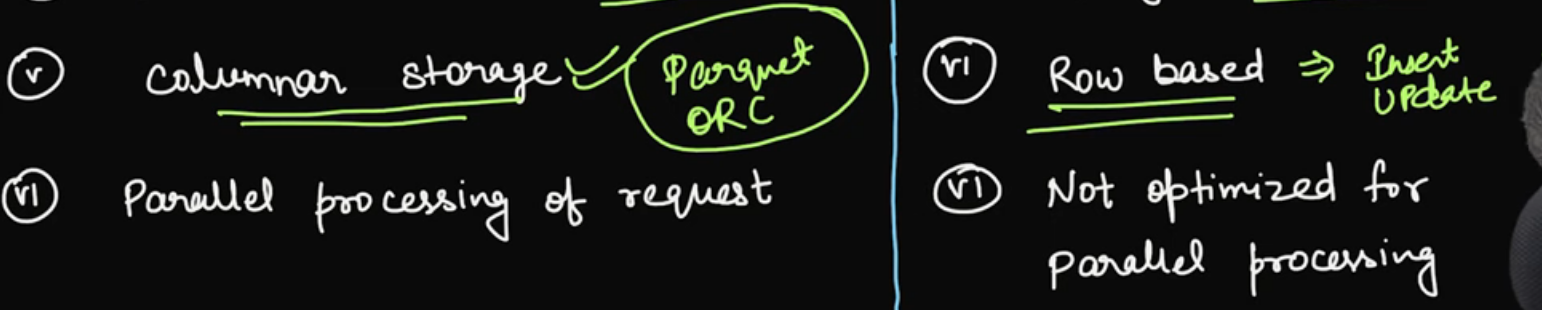 (v) Columnar storage Parquet
ORC
(vi) Parallel processing of request
(vi) Row based ⇒ Insert
Update
(vi) Not optimized for
Parallel processing